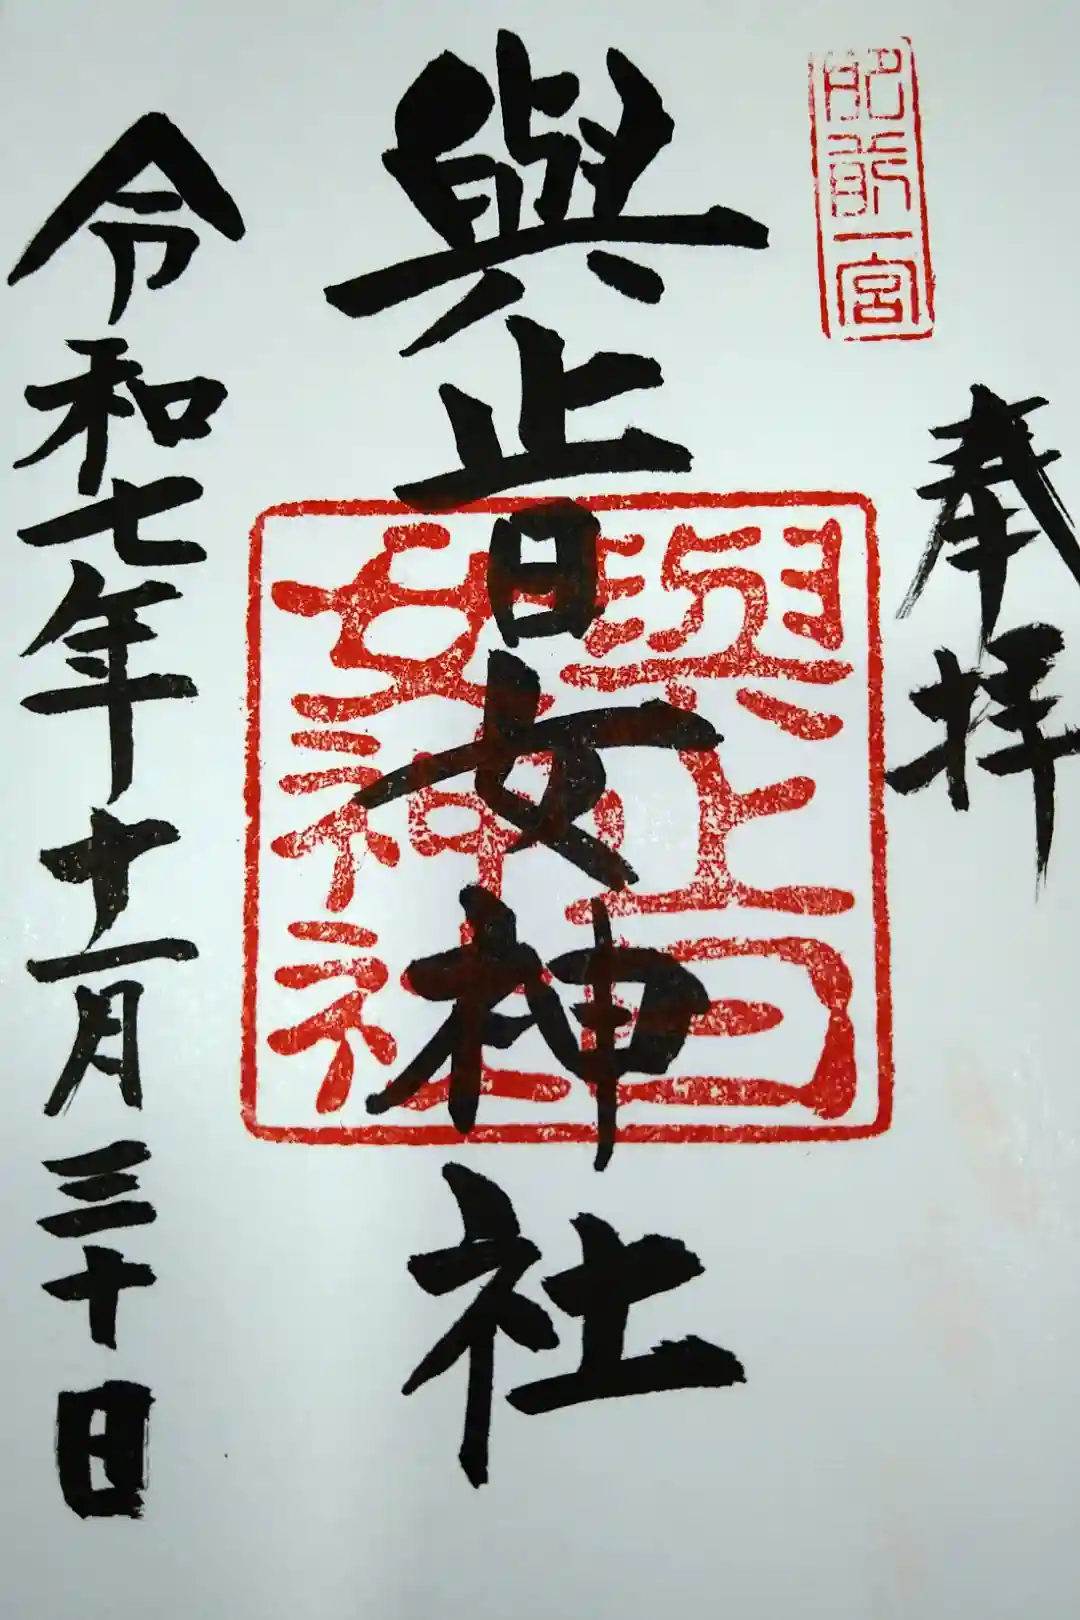 肥前一宮
奉拝
與止日女神社
與止日
女神社
令和七年十一月三十日